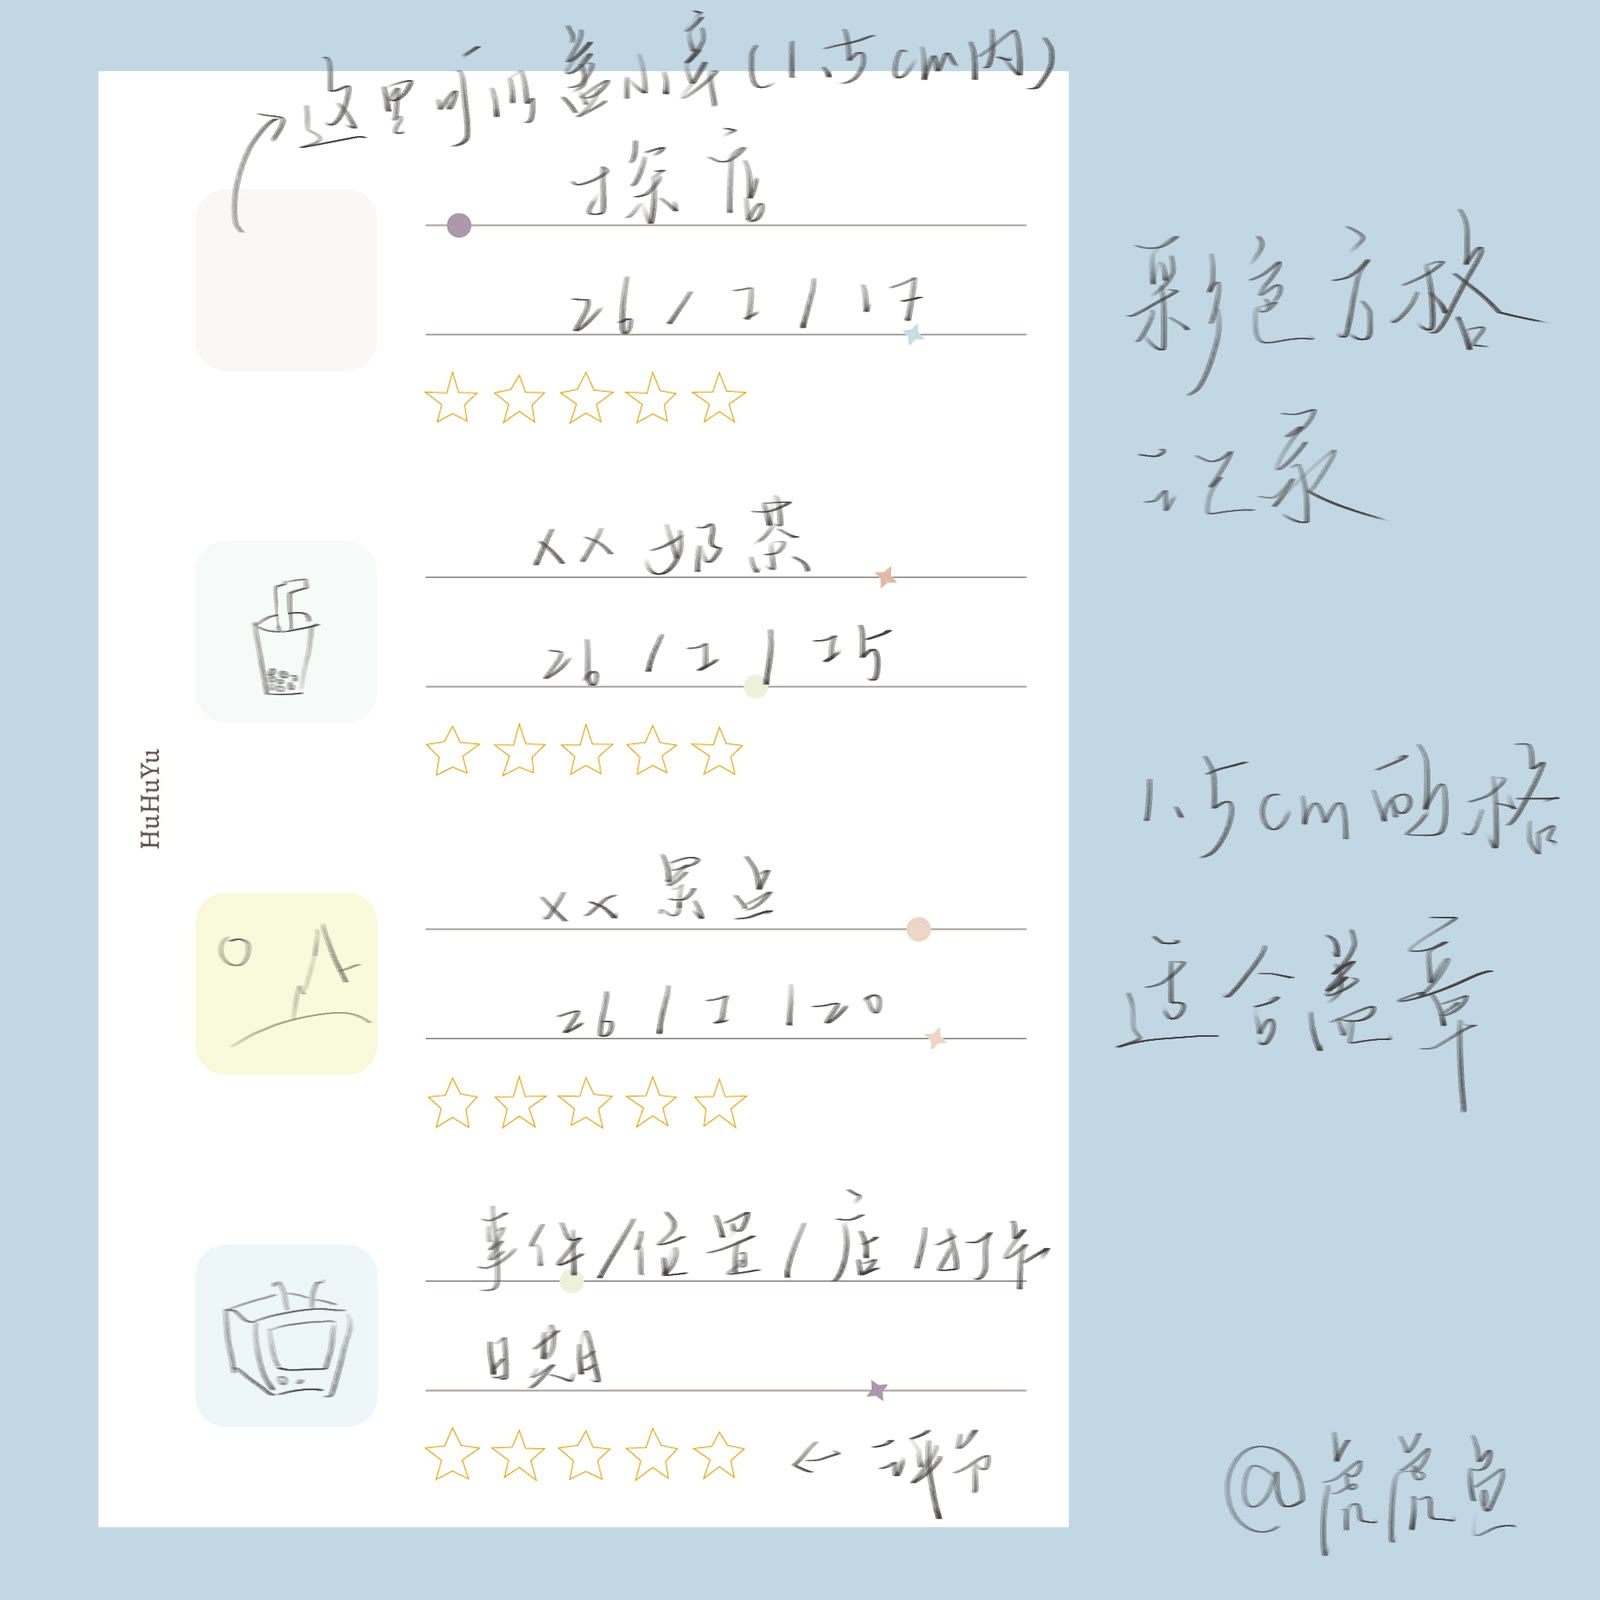 这里可以盖小章(1.5cm内)
探店
26/2/17
xx奶茶
26/2/25
xx景点
26/2/20
事件/位置/店/打卡
日期
← 评分
HuHuYu
彩色方格
记录
1.5cm的格
适合盖章
@虎虎鱼